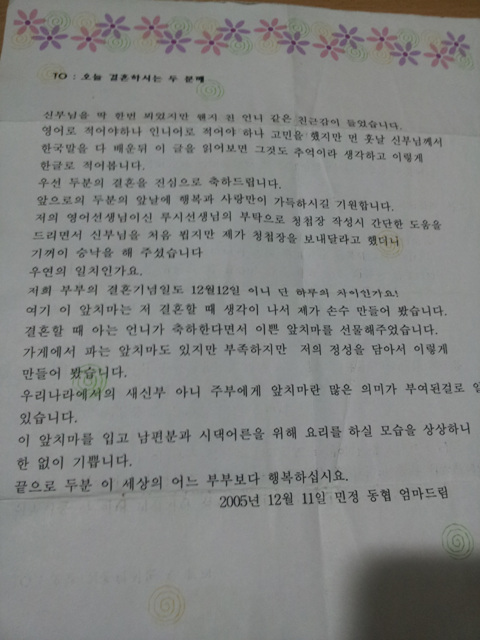 TO : 오늘 결혼하시는 두 분께
신부님을 딱 한번 뵈었지만 왠지 친 언니 같은 친근감이 들었습니다.
영어로 적어야하나 인니어로 적어야 하나 고민을 했지만 먼 훗날 신부님께서
한국말을 다 배운뒤 이 글을 읽어보면 그것도 추억이라 생각하고 이렇게
한글로 적어봅니다.
우선 두분의 결혼을 진심으로 축하드립니다.
앞으로의 두분의 앞날에 행복과 사랑만이 가득하시길 기원합니다.
저의 영어선생님이신 루시선생님의 부탁으로 청첩장 작성시 간단한 도움을
드리면서 신부님을 처음 뵙지만 제가 청첩장을 보내달라고 했더니
기꺼이 승낙을 해 주셨습니다
우연의 일치인가요.
저희 부부의 결혼기념일도 12월12일 이니 단 하루의 차이인가요!
여기 이 앞치마는 저 결혼할 때 생각이 나서 제가 손수 만들어 봤습니다.
결혼할 때 아는 언니가 축하한다면서 이쁜 앞치마를 선물해주었습니다.
가게에서 파는 앞치마도 있지만 부족하지만 저의 정성을 담아서 이렇게
만들어 봤습니다.
우리나라에서의 새신부 아니 주부에게 앞치마란 많은 의미가 부여된걸로
있습니다.
이 앞치마를 입고 남편분과 시댁어른을 위해 요리를 하실 모습을 상상하니
한 없이 기쁩니다.
끝으로 두분 이 세상의 어느 부부보다 행복하십시요.
2005년 12월 11일 민정 동협 엄마드림